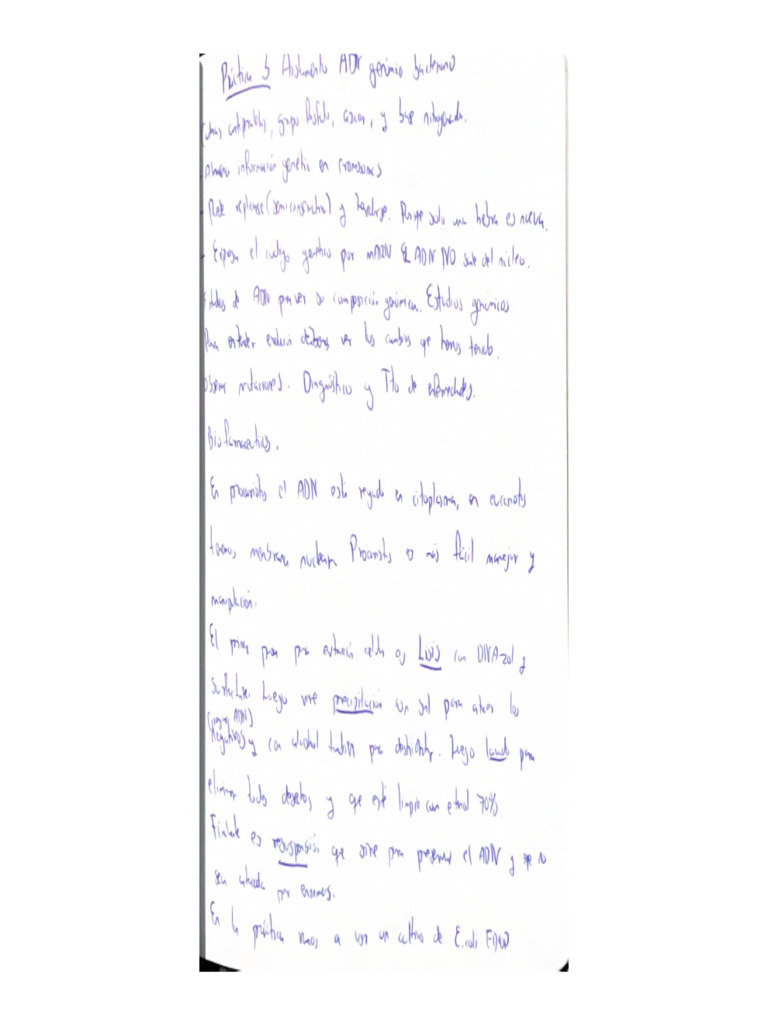 Práctica 5 Aislamiento ADN genómico bacteriano
antiparalelas, grupo fosfato, azúcar, y base nitrogenada.
información genética en cromosomas
Puede replicarse (semiconservativa) y heredarse. Porque solo una hebra es nueva.
- Expresa el código genético por mARN El ADN NO sale del núcleo.
Estudios de ADN para ver su composición genómica. Estudios genómicos
Para entender evolución debemos ver los cambios que hemos tenido.
Observar mutaciones. Diagnóstico y Tto de enfermedades.
Biofarmacéuticos.
En procariotas el ADN está regado en citoplasma, en eucariotas
tenemos membrana nuclear. Procariotas es más fácil manejar y
manipulación.
El primer paso para extracción celular es Lisis con DNAzol y
surfactante. Luego viene precipitación con sal para atraer los
(cargas ADN)
negativos y con alcohol también para deshidratar. Luego lavado para
eliminar todos desechos y que esté limpio con etanol 70%.
Finalmente es resuspensión que sirve para preservar el ADN y que no
sea atacado por enzimas.
En la práctica vamos a usar un cultivo de E. coli